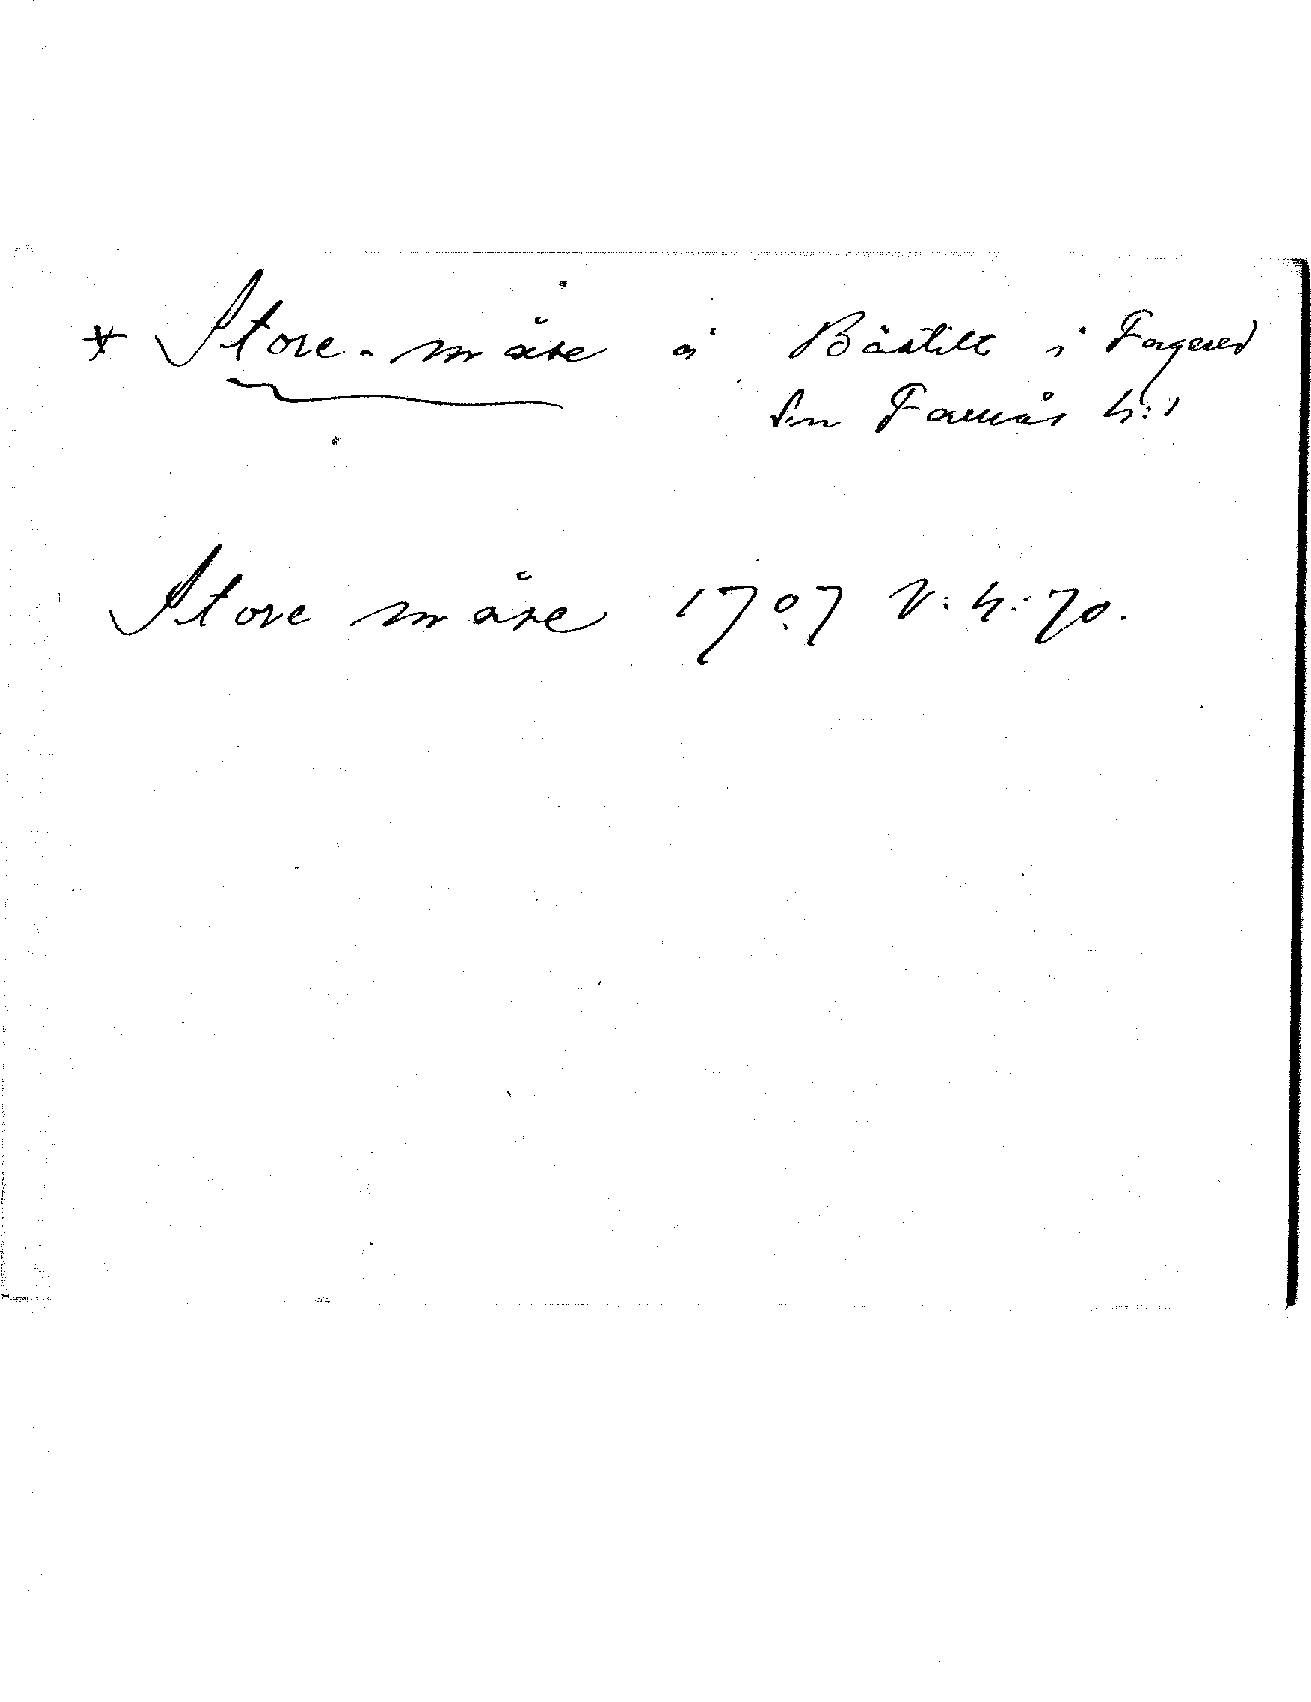 * Store-måse å Båstilt i Fagered
sn Faurås h:d
Store måse 1707 V: 4: 70.